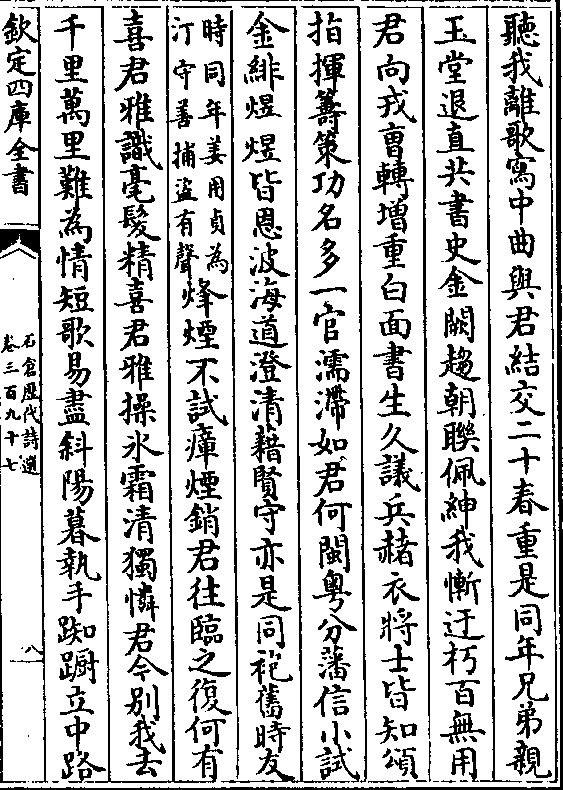 聽我離歌寫中曲與君結交二十春重是同年兄弟親
玉堂退直共書史金闕趨朝聯佩紳我慚迂朽百無用
君向戎曹轉增重白面書生久議兵赭衣將士皆知頌
指揮籌策功名多一官濡滯如君何閩粵分藩信小試
金緋煜煜皆恩波海道澄清藉賢守亦是同袍舊時友
時同年姜用貞為
汀守善捕盜有聲
烽煙不試瘴煙銷君往臨之復何有
喜君雅識毫髮精喜君雅操氷霜清獨憐君今别我去
千里萬里難為情短歌易盡斜陽暮執手踟蹰立中路
欽定四庫全書
石倉歴代詩選
卷三百九十七
八